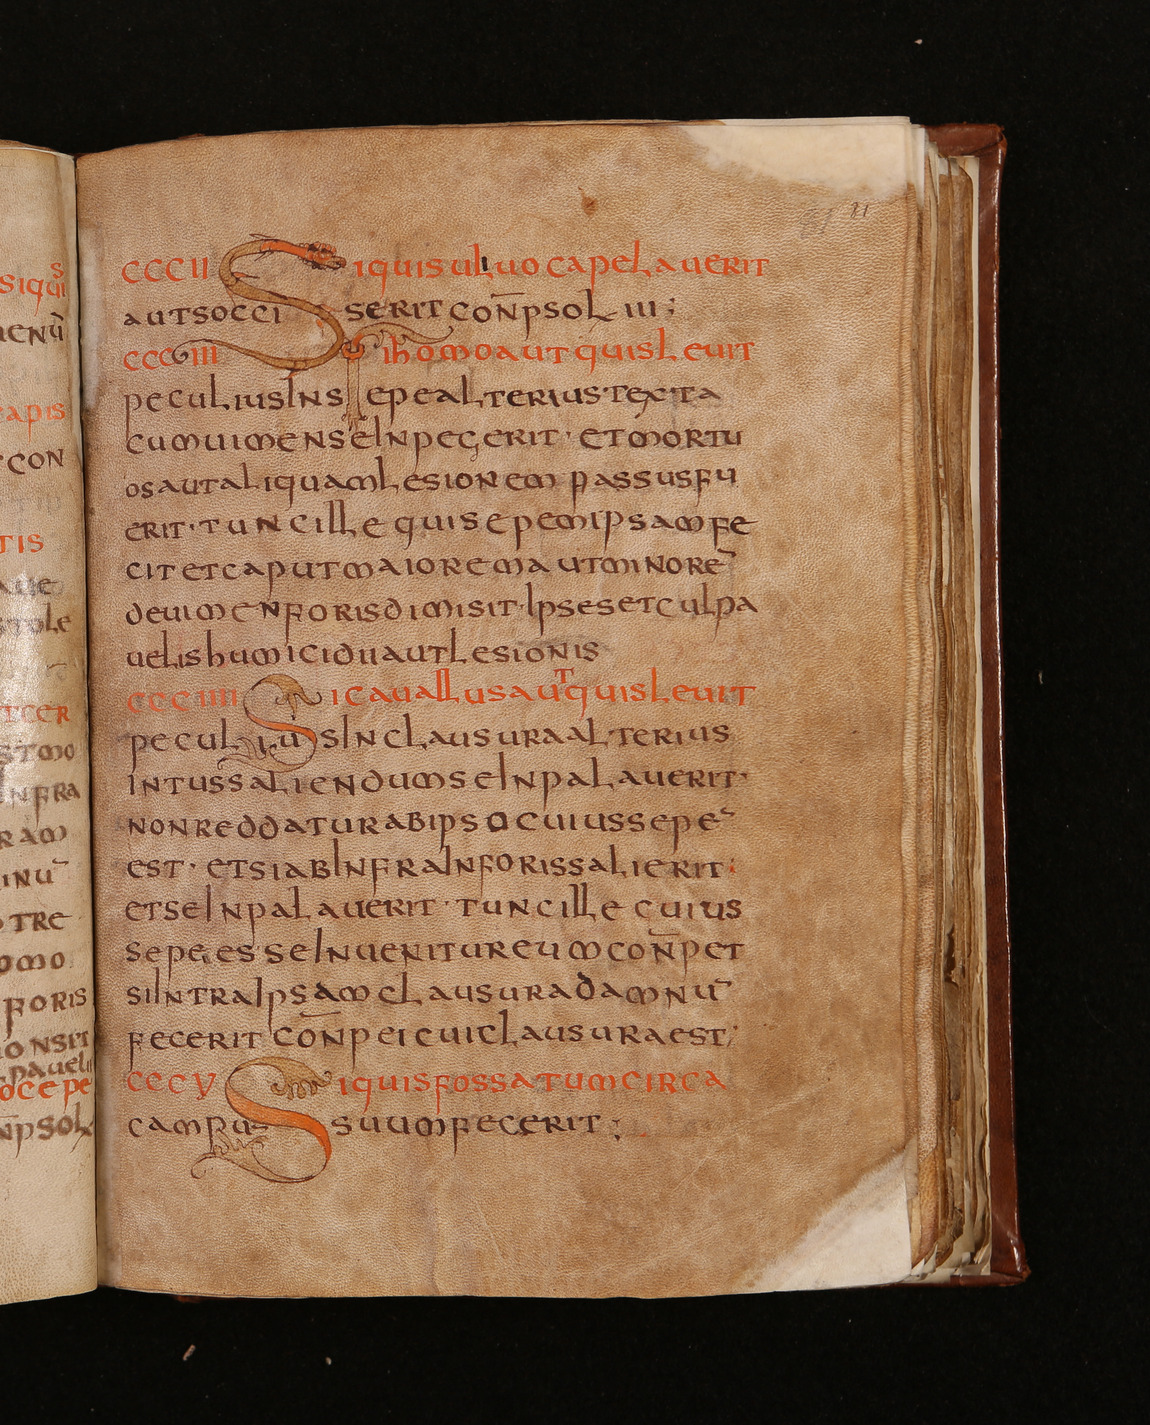 siqui
menū
capis
con
tis
stole
infra
ram
inū
tre
omo
foris
onsit
pauel
ocepe
n̄psol
81 11
cccii Siquis ulluo capelauerit
aut socci serit con̄p sol iii;
cccuiii Si homo aut quisleuit
peculius ins epe alterius texta
cum uimen se inpegerit · et mortu
os aut aliquam lesionem passus fu
erit · tunc ille qui sepem ipsam fe
cit et caput maiorem aut minorē
de uimen foris dimisit · ipse set culpa
uelis humicidii aut lesionis
ccciiii Si cauallus aut quisleuit
peculius in clausura alterius
intus saliendum se inpalauerit ·
non reddatur ab ipso cuius sepē
est · et si ab infra in foris salierit :
et se inpalauerit · tunc ille cuius
sepe esse inuenitur eum con̄pet
si intra ipsam clausura damnū
fecerit con̄p ei cui clausura est;
cccv Si quis fossatum circa
campus suum fecerit ;